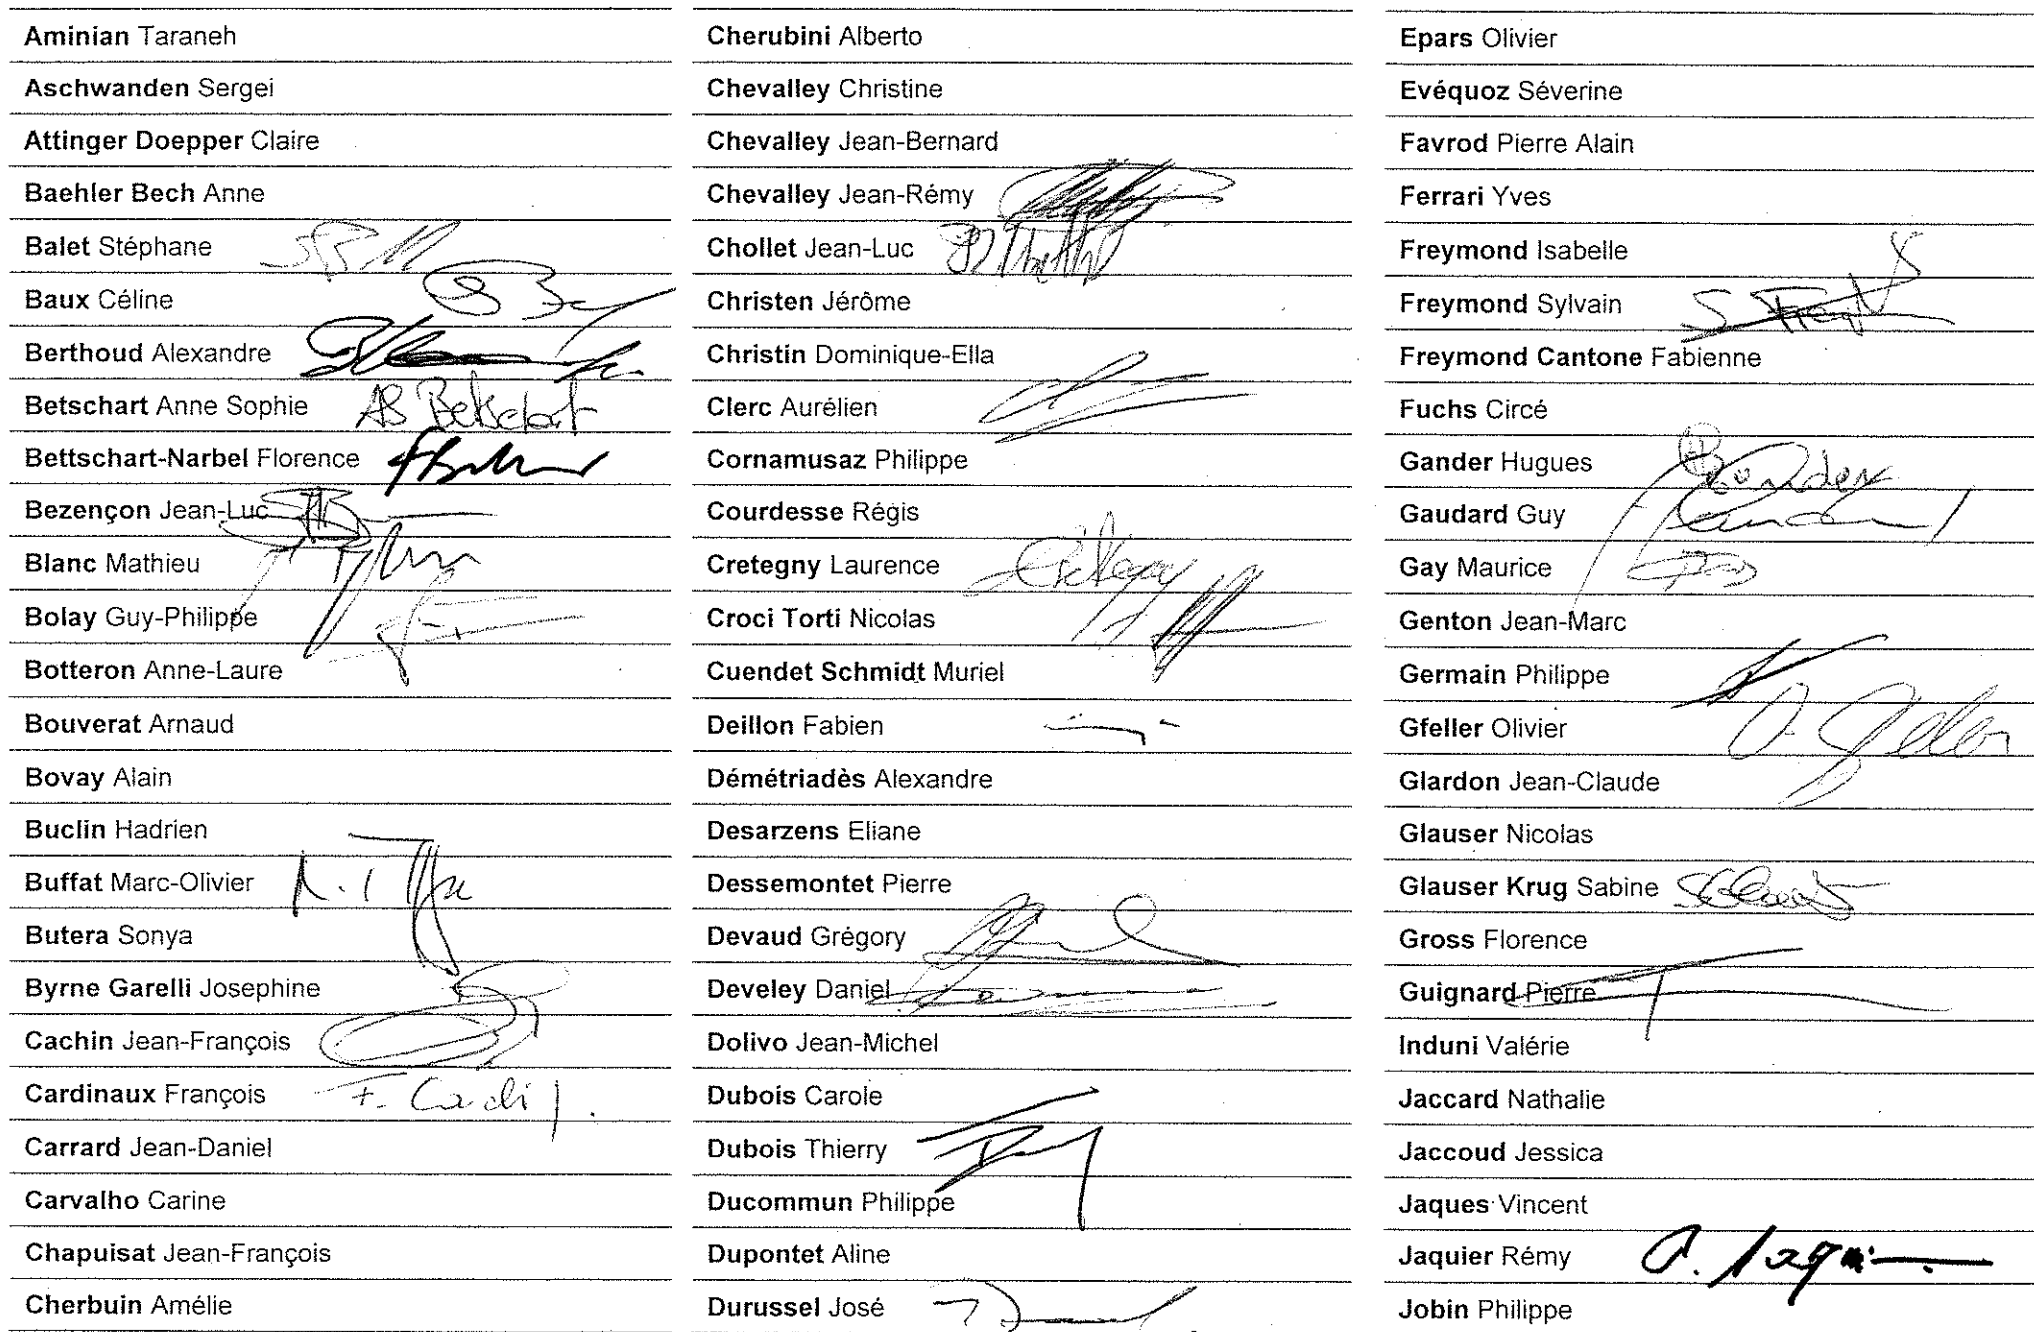 Aminian Taraneh
Aschwanden Sergei
Attinger Doepper Claire
Baehler Bech Anne
Balet Stéphane
Baux Céline
Berthoud Alexandre
Betschart Anne Sophie AS Betschart
Bettschart-Narbel Florence
Bezençon Jean-Luc
Blanc Mathieu
Bolay Guy-Philippe
Botteron Anne-Laure
Bouverat Arnaud
Bovay Alain
Buclin Hadrien
Buffat Marc-Olivier
Butera Sonya
Byrne Garelli Josephine
Cachin Jean-François
Cardinaux François F. Cardi
Carrard Jean-Daniel
Carvalho Carine
Chapuisat Jean-François
Cherbuin Amélie
Cherubini Alberto
Chevalley Christine
Chevalley Jean-Bernard
Chevalley Jean-Rémy
Chollet Jean-Luc
Christen Jérôme
Christin Dominique-Ella
Clerc Aurélien
Cornamusaz Philippe
Courdesse Régis
Cretegny Laurence Cretegny
Croci Torti Nicolas
Cuendet Schmidt Muriel
Deillon Fabien
Démétriadès Alexandre
Desarzens Eliane
Dessemontet Pierre
Devaud Grégory
Develey Daniel
Dolivo Jean-Michel
Dubois Carole
Dubois Thierry
Ducommun Philippe
Dupontet Aline
Durussel José
Epars Olivier
Evéquoz Séverine
Favrod Pierre Alain
Ferrari Yves
Freymond Isabelle
Freymond Sylvain
Freymond Cantone Fabienne
Fuchs Circé
Gander Hugues
Gaudard Guy
Gay Maurice
Genton Jean-Marc
Germain Philippe
Gfeller Olivier O. Gfeller
Glardon Jean-Claude
Glauser Nicolas
Glauser Krug Sabine
Gross Florence
Guignard Pierre
Induni Valérie
Jaccard Nathalie
Jaccoud Jessica
Jaques Vincent
Jaquier Rémy
Jobin Philippe